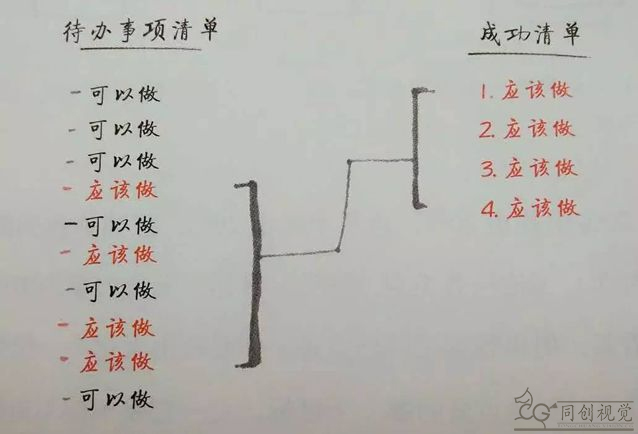 待办事项清单
- 可以做
- 可以做
- 可以做
- 应该做
- 可以做
- 应该做
- 可以做
- 应该做
- 应该做
- 可以做
成功清单
1. 应该做
2. 应该做
3. 应该做
4. 应该做
CG 同创视觉